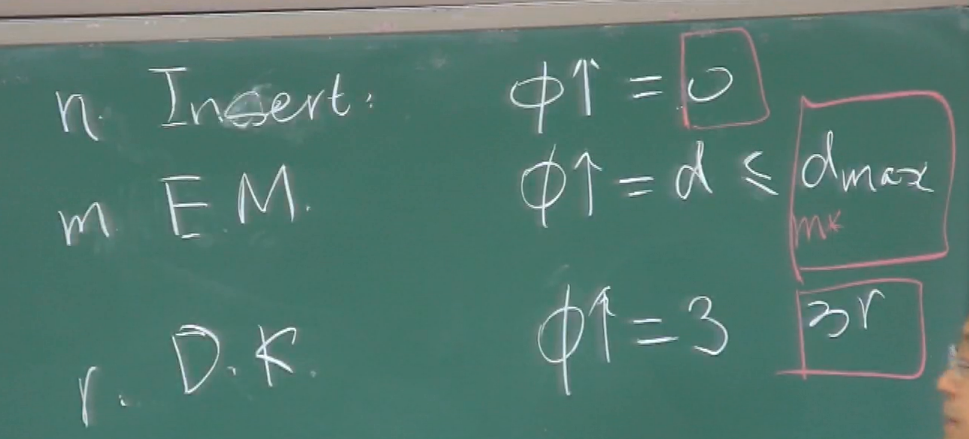 n. Insert. ϕ↑ = 0
m. E.M. ϕ↑ = d ≤ dmax
m*
r. D.K. ϕ↑ = 3 3r